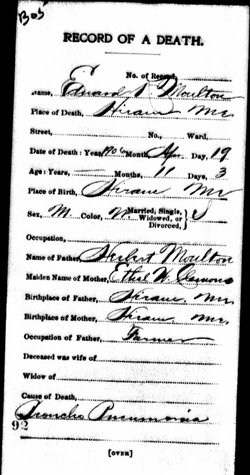 Bos
RECORD OF A DEATH.
No. of Record,
Name, Edward D Moulton
Place of Death, Hiram Me
Street, No., Ward,
Date of Death: Year, 1906 Month, Apr. Day, 19
Age: Years, — Months, 11 Days, 3
Place of Birth, Hiram Me
Sex, M Color, W Married, Single, Widowed, or Divorced, S
Occupation,
Name of Father, Herbert Moulton
Maiden Name of Mother, Ethel W
Birthplace of Father, Hiram, Me
Birthplace of Mother, Hiram, Me
Occupation of Father, Farmer
Deceased was wife of
Widow of
Cause of Death,
Broncho Pneumonia
92
[OVER]